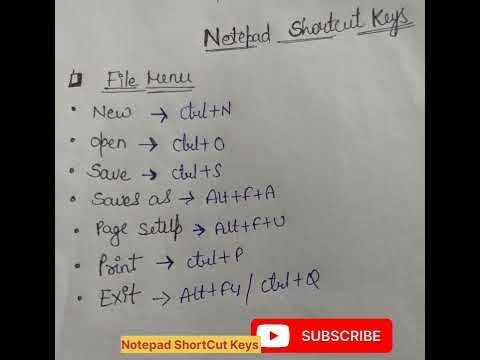 Notepad Shortcut Keys
File Menu
New → Ctrl+N
open → Ctrl+O
Save → Ctrl+S
Saves as → Alt+F+A
Page SetUp → Alt+F+U
Print → Ctrl+P
Exit → Alt+F4 / Ctrl+Q
Notepad ShortCut Keys
SUBSCRIBE